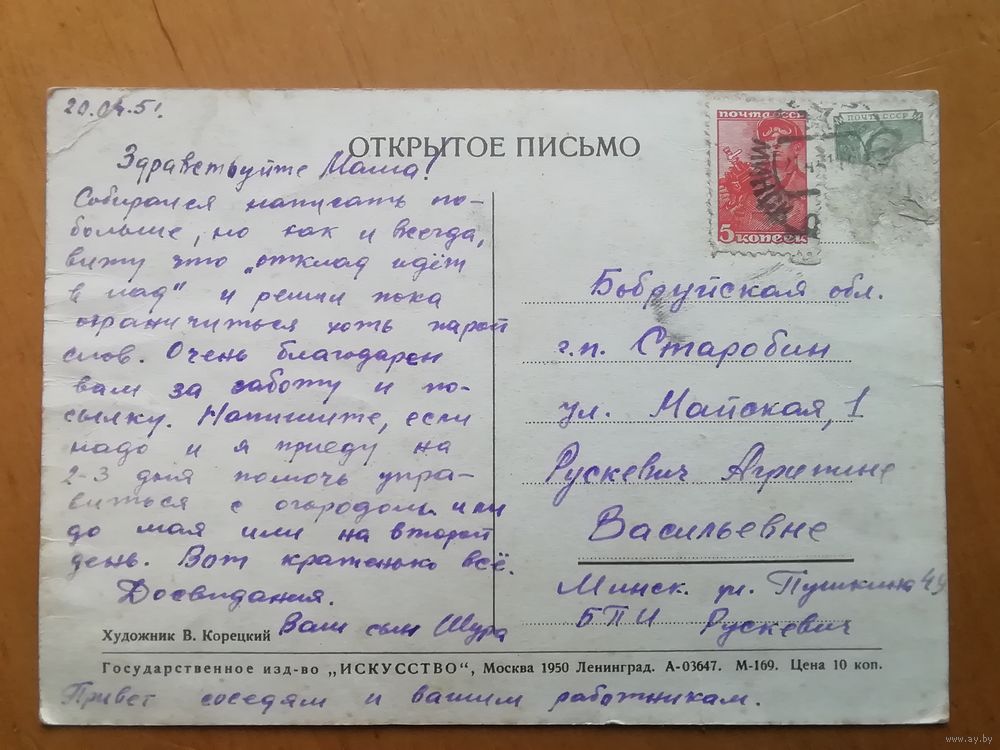 20.04.51.
ОТКРЫТОЕ ПИСЬМО
Здравствуйте Мама!
Собирался написать по-
больше, но как и всегда,
вижу что „отклад идёт
в лад" и решил пока
ограничиться хоть парой
слов. Очень благодарен
вам за заботу и по-
сылку. Напишите, если
надо и я приеду на
2-3 дня помочь упра-
виться с огородом или
до мая или на второй
день. Вот кратенько всё.
Досвидания.
Ваш сын Шура
Художник В. Корецкий
Государственное изд-во „ИСКУССТВО", Москва 1950 Ленинград. А-03647. М-169. Цена 10 коп.
Привет соседям и вашим работникам.
ПОЧТА СССР
5 КОПЕЕК
МИНСК
ПОЧТА СССР
Бобруйская обл.
г.п. Старобин
ул. Майская, 1
Рускевич Агрипине
Васильевне
Минск ул. Пушкина 44
БПИ Рускевич
www.ay.by